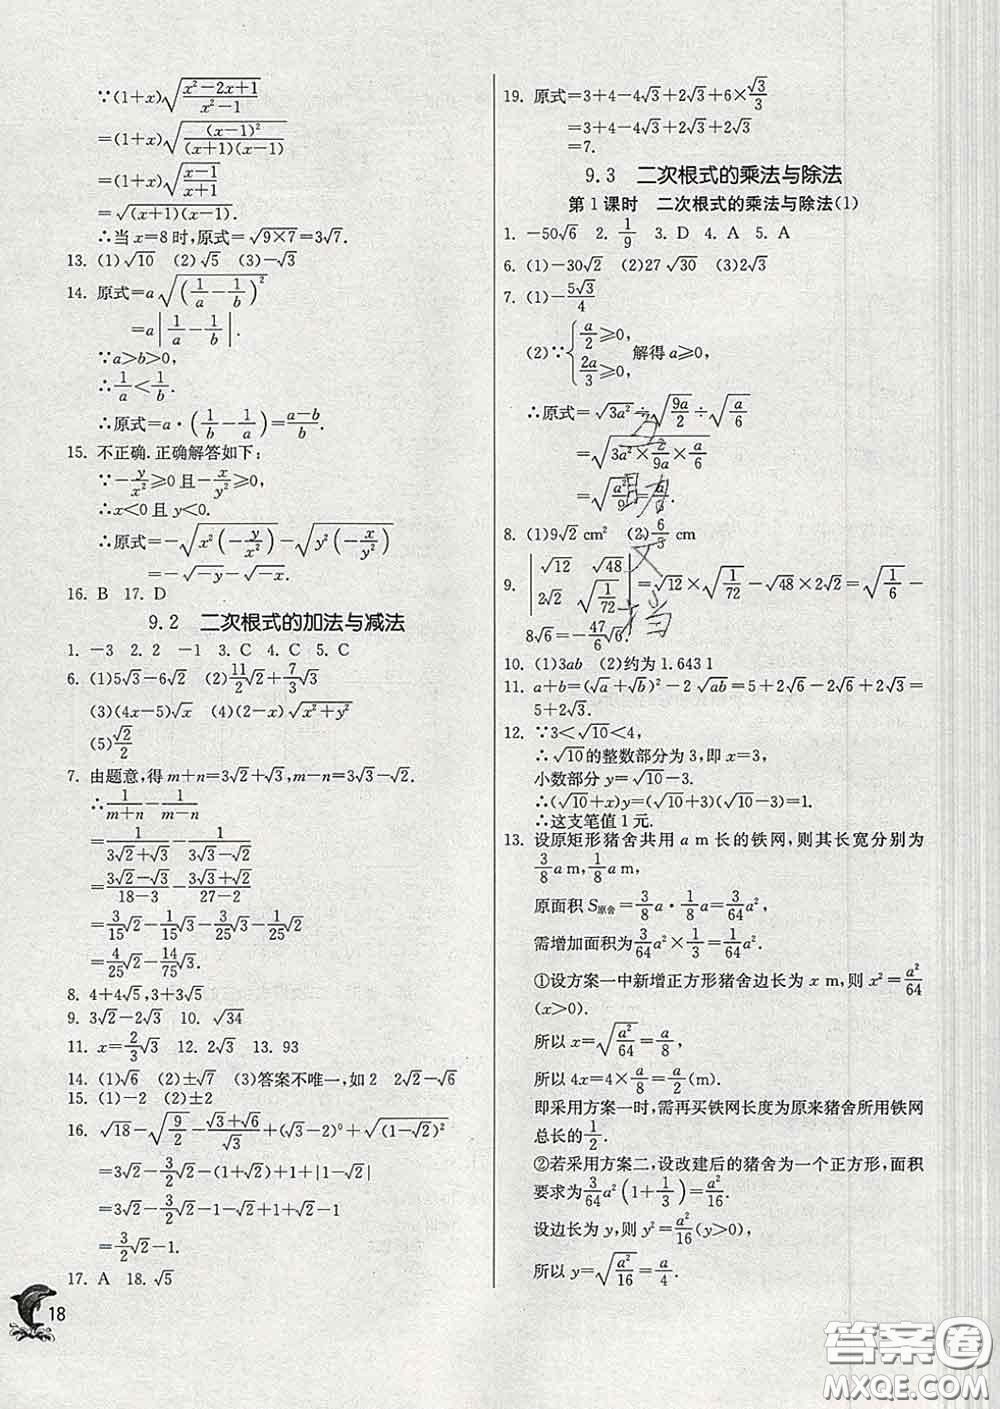 ∵(1+x)√((x²−2x+1)/(x²−1))
=(1+x)√((x−1)²/((x+1)(x−1)))
=(1+x)√((x−1)/(x+1))
=√((x+1)(x−1)).
∴当 x=8 时,原式=√(9×7)=3√7.
13. (1)√10 (2)√5 (3)−√3
14. 原式=a√((1/a−1/b)²)
=a|1/a−1/b|.
∵a>b>0,
∴1/a<1/b.
∴原式=a·(1/b−1/a)=(a−b)/b.
15. 不正确.正确解答如下:
∵−y/x²≥0 且−x/y²≥0,
∴x<0 且 y<0.
∴原式=−√(x²(−y/x²))−√(y²(−x/y²))
=−√(−y)−√(−x).
16. B 17. D
9.2 二次根式的加法与减法
1. −3 2. 2 −1 3. C 4. C 5. C
6. (1)5√3−6√2 (2)11/2√2+7/3√3
(3)(4x−5)√x (4)(2−x)√(x²+y²)
(5)√2/2
7. 由题意,得 m+n=3√2+√3,m−n=3√3−√2.
∴1/(m+n)−1/(m−n)
=1/(3√2+√3)−1/(3√3−√2)
=(3√2−√3)/(18−3)−(3√3+√2)/(27−2)
=3/15√2−1/15√3−3/25√3−1/25√2
=4/25√2−14/75√3.
8. 4+4√5,3+3√5
9. 3√2−2√3 10. √34
11. x=2/3√3 12. 2√3 13. 93
14. (1)√6 (2)±√7 (3)答案不唯一,如 2 2√2−√6
15. (1)−2 (2)±2
16. √18−√(9/2)−(√3+√6)/√3+(√3−2)⁰+√((1−√2)²)
=3√2−3/2√2−(1+√2)+1+|1−√2|
=3√2−3/2√2−1−√2+1+√2−1
=3/2√2−1.
17. A 18. √5
18
19. 原式=3+4−4√3+2√3+6×√3/3
=3+4−4√3+2√3+2√3
=7.
9.3 二次根式的乘法与除法
第 1 课时 二次根式的乘法与除法(1)
1. −50√6 2. 1/9 3. D 4. A 5. A
6. (1)−30√2 (2)27√30 (3)2√3
7. (1)−5√3/4
(2)∵{a/2≥0, 2a/3≥0, 解得 a≥0,
∴原式=√(3a²)÷√(9a/2)÷√(a/6)
=√(3a²×2/(9a)×a/6)
=√(a²/9)=a/3.
8. (1)9√2 cm² (2) cm
9. |√12 √48 2√2 √(1/72)|=√12×√(1/72)−√48×2√2=√(1/6)−
8√6=−47/6√6.
10. (1)3ab (2)约为 1.643 1
11. a+b=(√a+√b)²−2√ab=5+2√6−2√6+2√3=
5+2√3.
12. ∵3<√10<4,
∴√10的整数部分为 3,即 x=3,
小数部分 y=√10−3.
∴(√10+x)y=(√10+3)(√10−3)=1.
∴这支笔值 1 元.
13. 设原矩形猪舍共用 a m 长的铁网,则其长宽分别为
3/8a m,1/8a m,
原面积 S原舍=3/8a·1/8a=3/64a²,
需增加面积为3/64a²×1/3=1/64a².
①设方案一中新增正方形猪舍边长为 x m,则 x²=a²/64
(x>0).
所以 x=√(a²/64)=a/8,
所以 4x=4×a/8=a/2(m).
即采用方案一时,需再买铁网长度为原来猪舍所用铁网
总长的1/2.
②若采用方案二,设改建后的猪舍为一个正方形,面积
要求为3/64a²(1+1/3)=a²/16.
设边长为 y,则 y²=a²/16(y>0),
所以 y=√(a²/16)=a/4.
答案卷
MXQE.COM